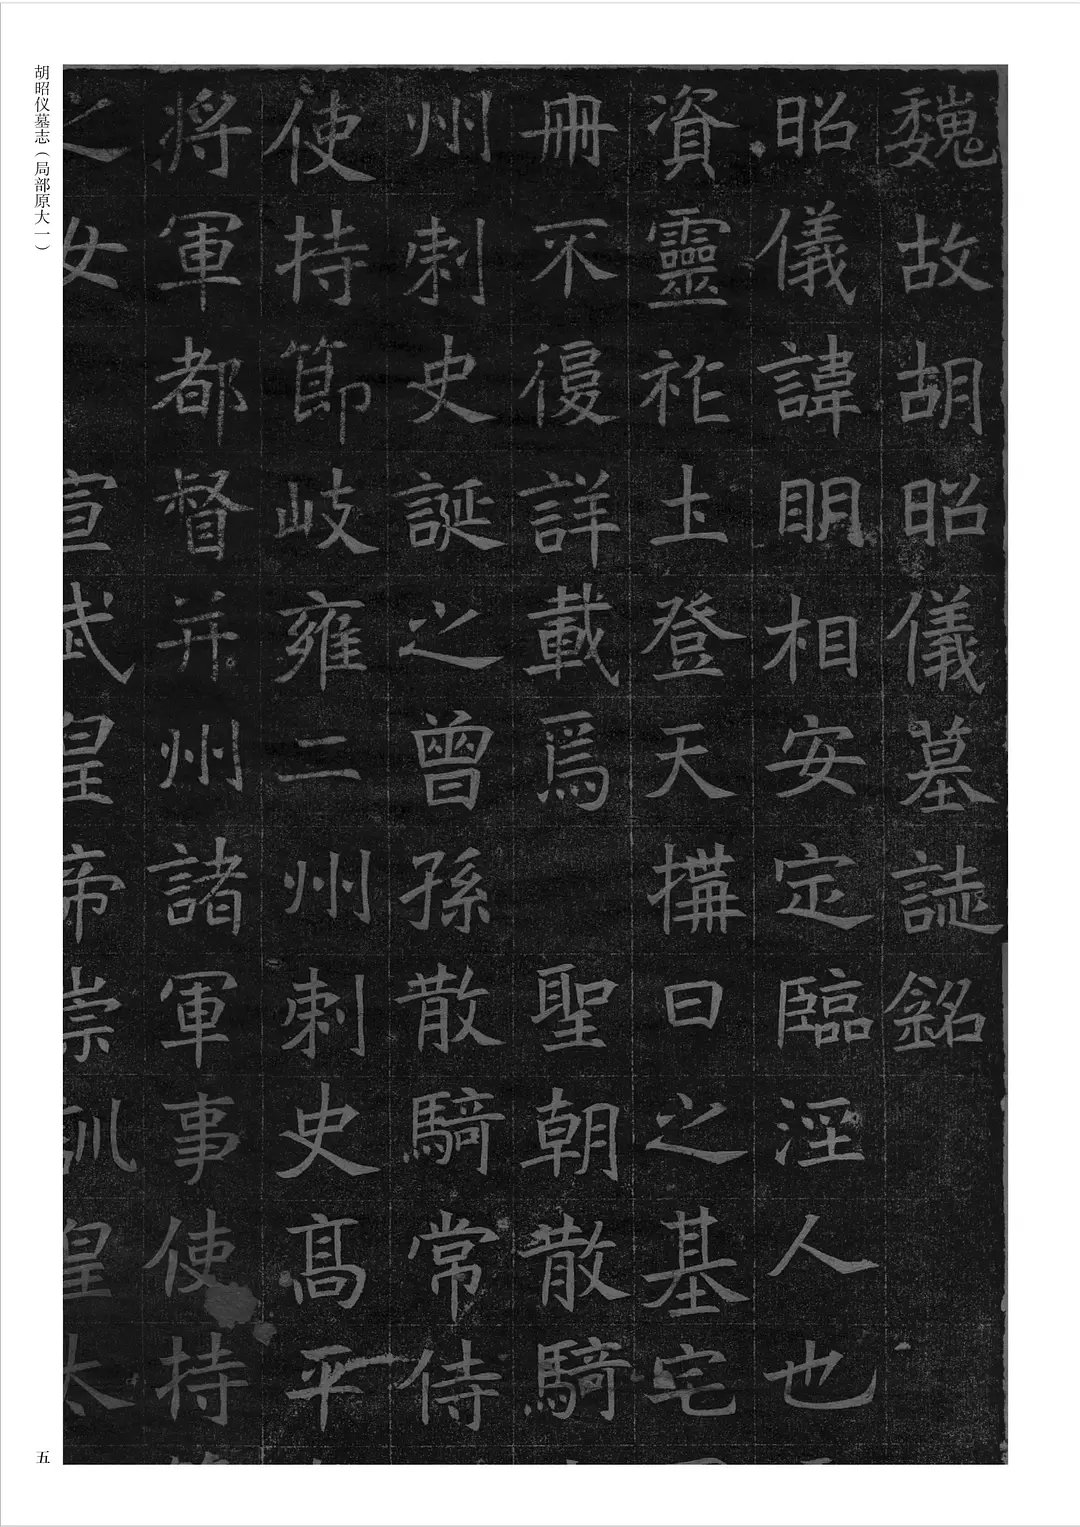 魏故胡昭儀墓誌銘
昭儀諱明相安定臨涇人也
資靈祚土登天構日之基宅
冊不復詳載焉聖朝散騎
州刺史誕之曾孫散騎常侍
使持節岐雍二州刺史高平
將軍都督并州諸軍事使持
之女宣武皇帝崇訓皇太
胡昭仪墓志（局部原大一）
五